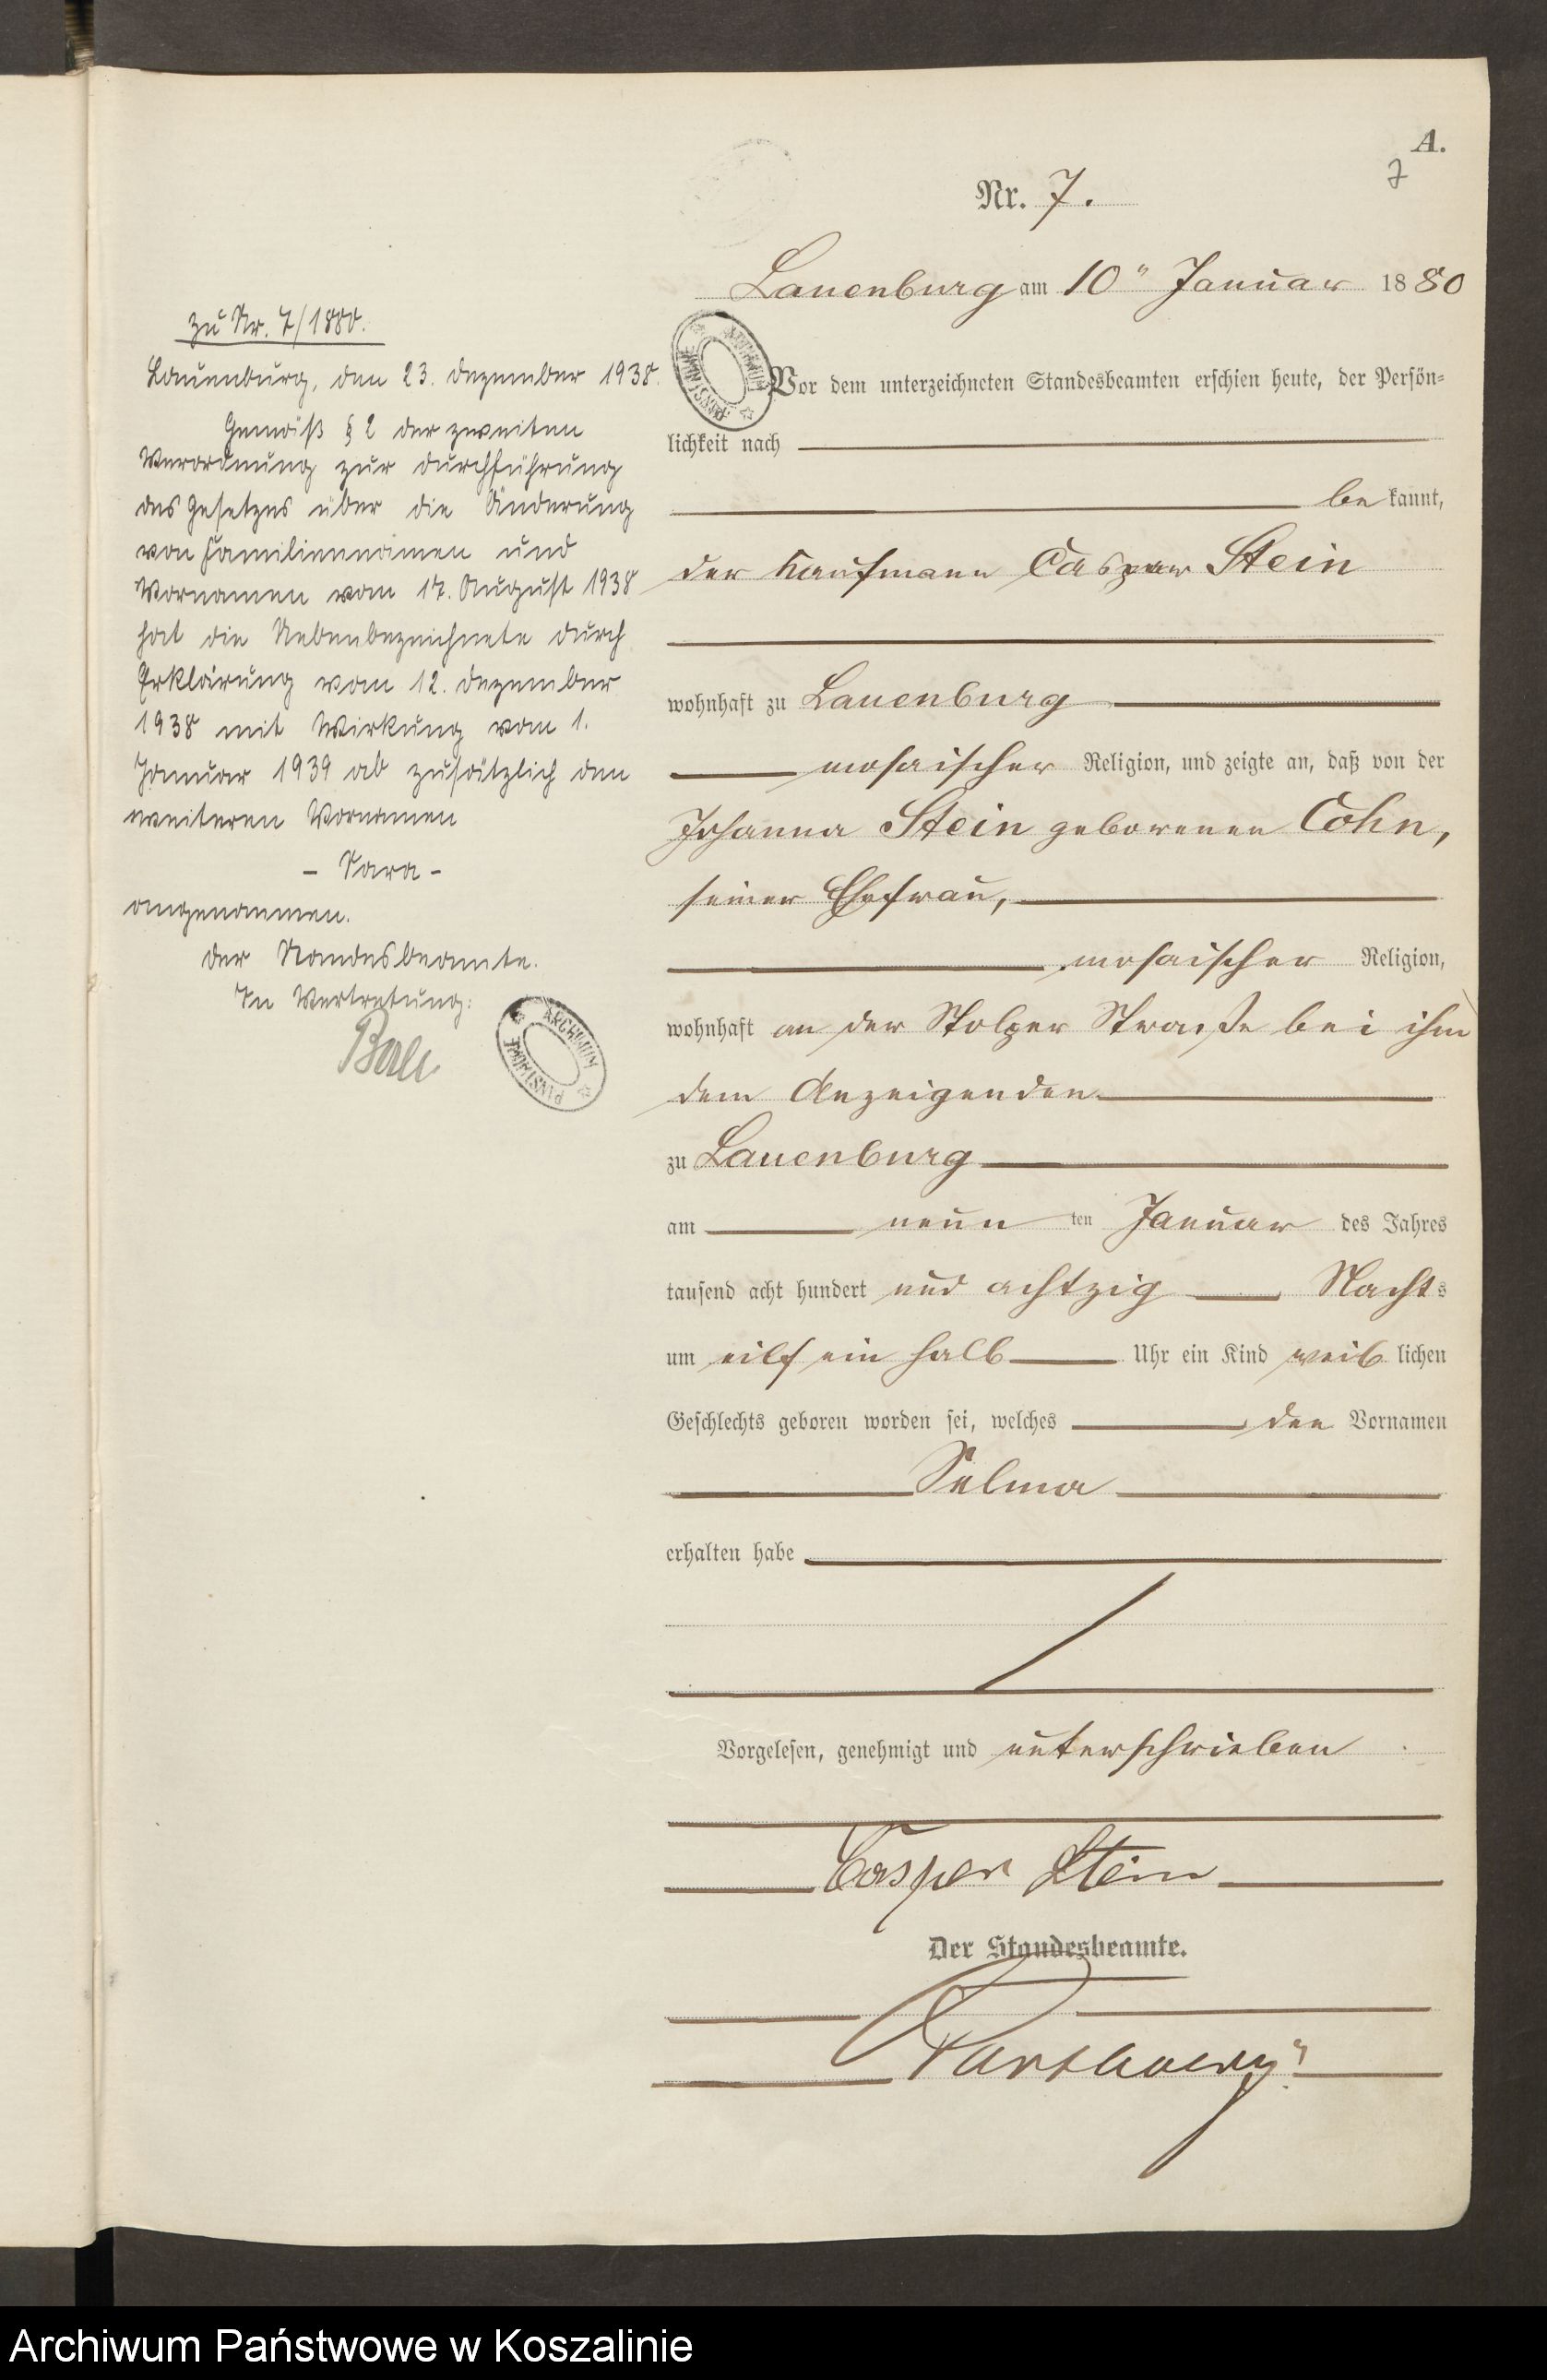 A.
7
Nr. 7.
Lauenburg am 10" Januar 1880
Vor dem unterzeichneten Standesbeamten erschien heute, der Persön-
lichkeit nach
be kannt,
der Kaufmann Caspar Stein
wohnhaft zu Lauenburg
mosaischer Religion, und zeigte an, daß von der
Johanna Stein geborenen Cohn,
seiner Ehefrau,
mosaischer Religion,
wohnhaft an der Stolper Straße bei ihm
dem Anzeigenden
zu Lauenburg
am neun ten Januar des Jahres
tausend acht hundert und achtzig Nachts
um eilf ein halb Uhr ein Kind weib lichen
Geschlechts geboren worden sei, welches den Vornamen
Selma
erhalten habe
Vorgelesen, genehmigt und unterschrieben
Casper Stein
Der Standesbeamte.
zu Nr. 7/1880.
Lauenburg, den 23. Dezember 1938.
Gemäß § 2 der zweiten
Verordnung zur Durchführung
des Gesetzes über die Änderung
von Familiennamen und
Vornamen vom 17. August 1938
hat die Nebenbezeichnete durch
Erklärung vom 12. Dezember
1938 mit Wirkung vom 1.
Januar 1939 ab zusätzlich den
weiteren Vornamen
- Sara -
angenommen.
Der Standesbeamte.
In Vertretung:
ARCHIWUM
PAŃSTWOWE
ARCHIWUM
PAŃSTWOWE
Archiwum Państwowe w Koszalinie